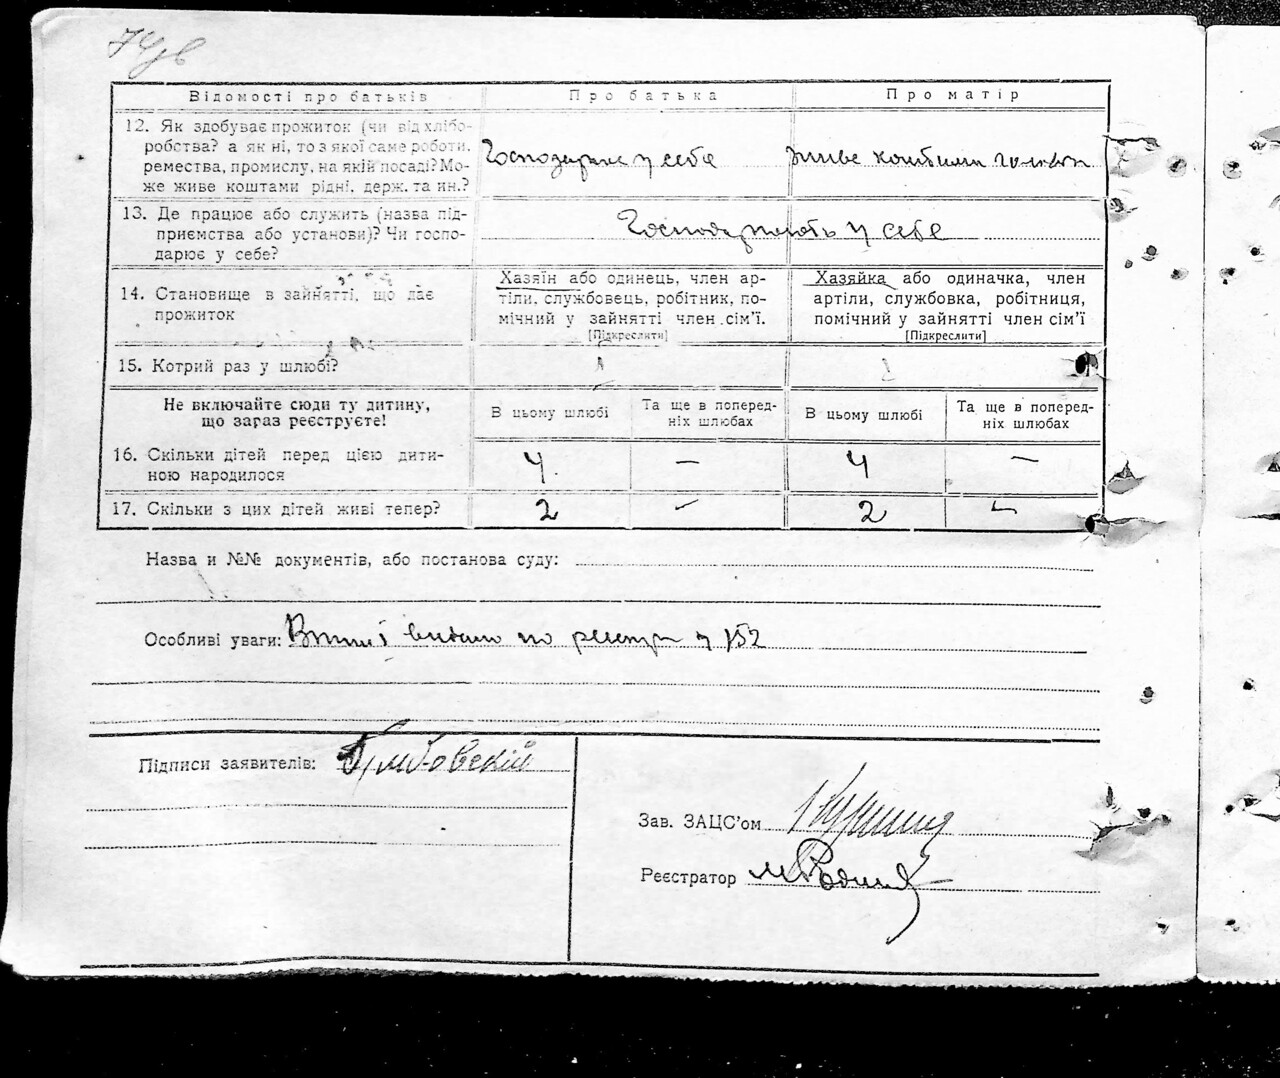 74зв
Відомості про батьків
Про батька
Про матір
12. Як здобуває прожиток (чи від хлібо-
робства? а як ні, то з якої саме роботи,
ремества, промислу, на якій посаді? Мо-
же живе коштами рідні, держ. та ин.?
Господарює у себе
живе коштами чоловіка
13. Де працює або служить (назва під-
приємства або установи)? Чи госпо-
дарює у себе?
Господарюють у себе
14. Становище в зайнятті, що дає
прожиток
Хазяїн або одинець, член ар-
тіли, службовець, робітник, по-
мічний у зайнятті член сім'ї.
[Підкреслити]
Хазяйка або одиначка, член
артіли, службовка, робітниця,
помічний у зайнятті член сім'ї
[Підкреслити]
15. Котрий раз у шлюбі?
1
1
Не включайте сюди ту дитину,
що зараз реєструєте!
В цьому шлюбі
Та ще в поперед-
ніх шлюбах
В цьому шлюбі
Та ще в поперед-
ніх шлюбах
16. Скільки дітей перед цією дити-
ною народилося
4
—
4
—
17. Скільки з цих дітей живі тепер?
2
—
2
—
Назва и №№ документів, або постанова суду:
Особливі уваги: видано по реєстру 152
Підписи заявителів:
Зав. ЗАЦС'ом
Реєстратор